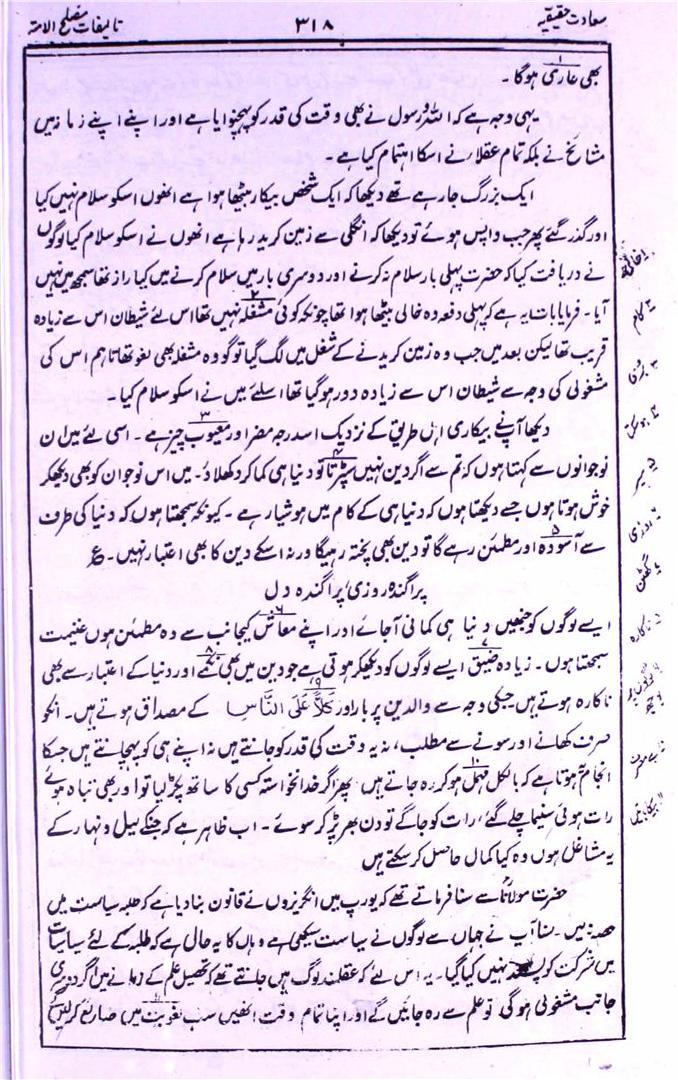 سعادت حقیقیہ ۳۱۸ تالیفات مصلح الامتہ
بھی عاری ہوگا۔
یہی وجہ ہے کہ اللہ و رسول نے بھی وقت کی قدر کو پہچنوایا ہے اور اپنے اپنے زمانہ میں
مشائخ نے بلکہ تمام عقلا نے اسکا اہتمام کیا ہے۔
ایک بزرگ جارہے تھے دیکھا کہ ایک شخص بیکار بیٹھا ہوا ہے انھوں اسکو سلام نہیں کیا
اور گذر گئے پھر جب واپس ہوئے تو دیکھا کہ انگلی سے زمین کرید رہا ہے انھوں نے اسکو سلام کیا لوگوں
نے دریافت کیا کہ حضرت پہلی بار سلام نہ کرنے اور دوسری بار میں سلام کرنے میں کیا راز تھا سمجھ میں نہیں
آیا۔ فرمایا بات یہ ہے کہ پہلی دفعہ وہ خالی بیٹھا ہوا تھا چونکہ کوئی مشغلہ نہیں تھا اس لئے شیطان اس سے زیادہ
قریب تھا لیکن بعد میں جب وہ زمین کریدنے کے شغل میں لگ گیا تو گو وہ مشغلہ بھی لغو تھا تاہم اس کی
مشغولی کی وجہ سے شیطان اس سے زیادہ دور ہوگیا تھا اسلئے میں نے اسکو سلام کیا۔
دیکھا آپنے بیکاری اہل طریق کے نزدیک اسدرجہ مضر اور معیوب چیز ہے۔ اسی لئے میں ان
نوجوانوں سے کہتا ہوں کہ تم سے اگر دین نہیں سپڑتا تو دنیا ہی کما کر دکھلادو۔ میں اس نوجوان کو بھی دیکھکر
خوش ہوتا ہوں جسے دیکھتا ہوں کہ دنیا ہی کے کام میں ہوشیار ہے۔ کیونکہ سمجھتا ہوں کہ دنیا کی طرف
سے آسودہ اور مطمئن رہے گا تو دین بھی پختہ رہیگا ورنہ اسکے دین کا بھی اعتبار نہیں۔ ع
پراگندہ روزی پراگندہ دل
ایسے لوگوں کو جنھیں دنیا ہی کمانی آجائے اور اپنے معاش کیجانب سے وہ مطمئن ہوں غنیمت
سمجھتا ہوں۔ زیادہ ضیق ایسے لوگوں کو دیکھکر ہوتی ہے جو دین میں بھی نکمے اور دنیا کے اعتبار سے بھی
ناکارہ ہوتے ہیں جسکی وجہ سے والدین پر بار اور كَلًّا عَلَى النَّاسِ کے مصداق ہوتے ہیں۔ انکو
صرف کھانے اور سونے سے مطلب، نہ یہ وقت کی قدر کو جانتے ہیں نہ اپنے ہی کو پہچانتے ہیں جسکا
انجام یہ ہوتا ہے کہ بالکل مہمل ہو کر رہ جاتے ہیں پھر اگر خدانخواستہ کسی کا ساتھ پکڑ لیا تو اور بھی تباہ ہوئے
رات ہوئی سنیما چلے گئے، رات کو جاگے تو دن بھر پڑ کر سوئے۔ اب ظاہر ہے کہ جنکے لیل و نہار کے
یہ مشاغل ہوں وہ کیا کمال حاصل کرسکتے ہیں
حضرت مولاناؒ سے سنا فرماتے تھے کہ یورپ میں انگریزوں نے قانون بنادیا ہے کہ طلبہ سیاست میں
حصہ نہ لیں۔ سنا آپ نے جہاں سے لوگوں نے سیاست سیکھی ہے وہاں کا یہ حال ہے کہ طلبہ کے لئے سیاسیات
میں شرکت کو پسند نہیں کیا گیا۔ یہ اس لئے کہ عقلمند لوگ ہیں جانتے تھے کہ تحصیل علم کے زمانے میں اگر دوسری
جانب مشغولی ہوگی تو علم سے رہ جائیں گے اور اپنا تمام وقت انھیں سب لغویت میں ضایع کردیں گے
۱ خالی
۲ کام
۶ روزی
۷ گھٹن
۸ ناکارہ
۹ لوگوں پر
بوجھ